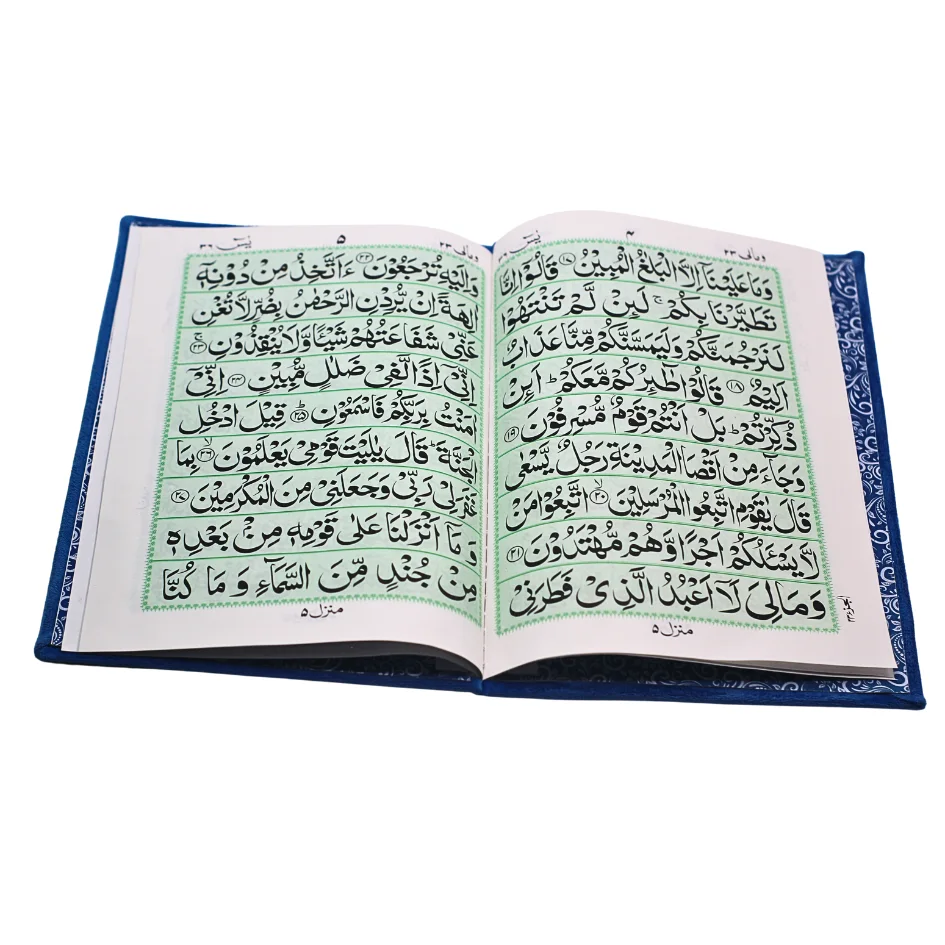 ومالی ۲۳
۴
یٰسٓ
وَمَا عَلَیْنَاۤ اِلَّا الْبَلٰغُ الْمُبِیْنُ ﴿۱۷﴾ قَالُوْۤا اِنَّا
تَطَیَّرْنَا بِكُمْ ۚ لَىِٕنْ لَّمْ تَنْتَهُوْا
لَنَرْجُمَنَّكُمْ وَلَیَمَسَّنَّكُمْ مِّنَّا عَذَابٌ
اَلِیْمٌ ﴿۱۸﴾ قَالُوْا طَآىِٕرُكُمْ مَّعَكُمْ ؕ اَىِٕنْ
ذُكِّرْتُمْ ؕ بَلْ اَنْتُمْ قَوْمٌ مُّسْرِفُوْنَ ﴿۱۹﴾
وَجَآءَ مِنْ اَقْصَا الْمَدِیْنَةِ رَجُلٌ یَّسْعٰی
قَالَ یٰقَوْمِ اتَّبِعُوا الْمُرْسَلِیْنَ ﴿۲۰﴾ۙ اتَّبِعُوْا مَنْ
لَّا یَسْـَٔلُكُمْ اَجْرًا وَّهُمْ مُّهْتَدُوْنَ ﴿۲۱﴾
وَمَا لِیَ لَاۤ اَعْبُدُ الَّذِیْ فَطَرَنِیْ
منزل ۵
ومالی ۲۳
۵
یٰسٓ ۳۶
وَاِلَیْهِ تُرْجَعُوْنَ ﴿۲۲﴾ ءَاَتَّخِذُ مِنْ دُوْنِهٖۤ
اٰلِهَةً اِنْ یُّرِدْنِ الرَّحْمٰنُ بِضُرٍّ لَّا تُغْنِ
عَنِّیْ شَفَاعَتُهُمْ شَیْـًٔا وَّلَا یُنْقِذُوْنِ ﴿۲۳﴾ۚ
اِنِّیْۤ اِذًا لَّفِیْ ضَلٰلٍ مُّبِیْنٍ ﴿۲۴﴾ اِنِّیْۤ
اٰمَنْتُ بِرَبِّكُمْ فَاسْمَعُوْنِ ﴿۲۵﴾ؕ قِیْلَ ادْخُلِ
الْجَنَّةَ ؕ قَالَ یٰلَیْتَ قَوْمِیْ یَعْلَمُوْنَ ﴿۲۶﴾ۙ بِمَا
غَفَرَ لِیْ رَبِّیْ وَجَعَلَنِیْ مِنَ الْمُكْرَمِیْنَ ﴿۲۷﴾
وَمَاۤ اَنْزَلْنَا عَلٰی قَوْمِهٖ مِنْۢ بَعْدِهٖ
مِنْ جُنْدٍ مِّنَ السَّمَآءِ وَمَا كُنَّا
منزل ۵